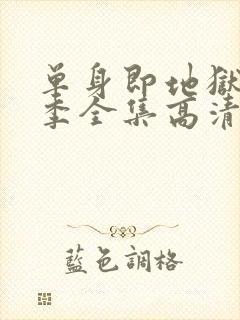 単身即地獄
季全集高清
藍色調格